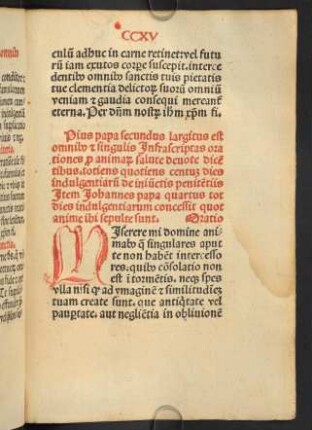 CCXV
culū adhuc in carne retinet: vel futu
rū iam exutos corꝑe suscepit. interce
dentibꝰ omnibꝰ sanctis tuis pietatis
tue clementia delictoꝝ suorū omniū
veniam ⁊ gaudia consequi mereant᷑
eterna. Per dn̄m nostꝝ ihm xp̄m fi.
Pius papa secundus largitus est
omnibꝰ ⁊ singulis Infrascriptas ora
tiones ꝓ animaꝝ salute deuote dicē
tibus. totiens quotiens centuꝫ dies
indulgentiarū de iniūctis penitētiis
Item Johannes papa quartus tot
dies indulgentiarum concessit quot
anime ibi sepulte sunt. Oratio
Miserere mi domine ani
mabꝰ qͥ singulares apud
te non habēt intercesso
res. quibꝰ cōsolatio non
est ī tormētis. neqꝫ spes
vlla nisi ꝙ ad ymaginē ⁊ similitudīeꝫ
tuam create sunt. que antiq̄tate vel
paupͥtate. aut negliētia in obliuionē